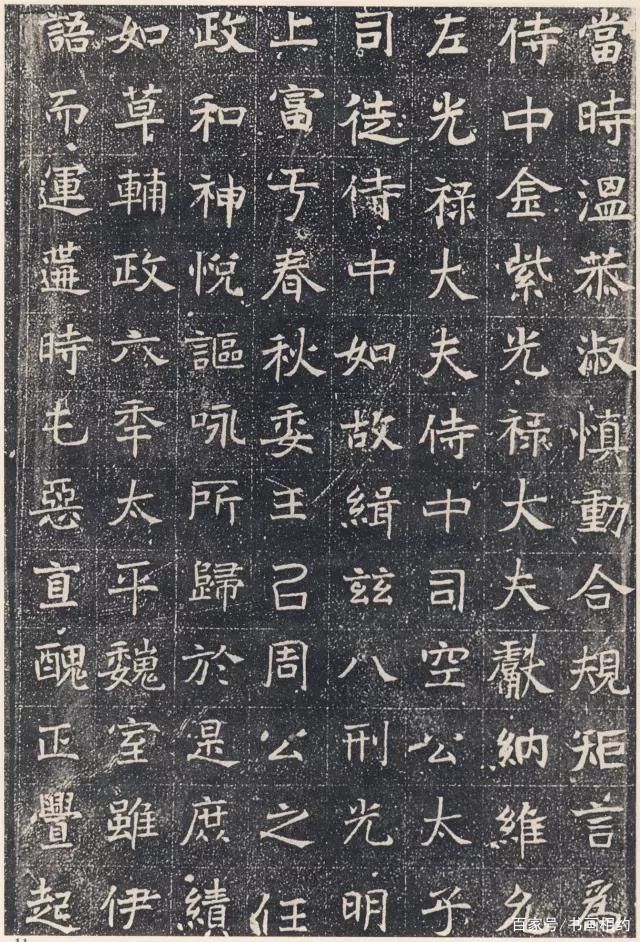 當時溫恭淑慎動合規矩言爲
侍中金紫光祿大夫獻納維允
左光祿大夫侍中司空公太平
司徒侍中如故緝玆八刑光明
上富于春秋委王以周公之任
政和神悅謳咏所歸於是庶績
如草輔政六年太平魏室雖伊
語而運遘時屯惡直醜正舋起
11
百家号/书画相约